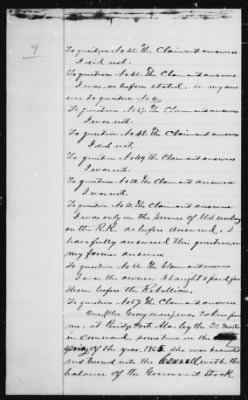 9
To question No 45. The Claimant answers
I did not.
To question No 46. The Claimant answers
I was, as before stated, in my answer
to question No
To question No 47. The Claimant answers
I was not.
To question No 48. The Claimant answers
I did not,
To question No 49 the Claimant answers
I was not.
To question No 50. The Claimant answers
I was not.
To question No The Claimant answers
I was only in the service of Uld working
on the R.R. as before answered, I
have fully answered this question in
my former answer
To question No 66 The Claimant answers
I was the owner I bought & paid for
them before the Rebellion,
To question No 67 The Claimant answers
One the Gray mare was taken from
me, at Bridge Port Ala. by the
in command, sometime in the
Spring of the year 1865, she was branded
and turned into the with the
balance of the Government Stock